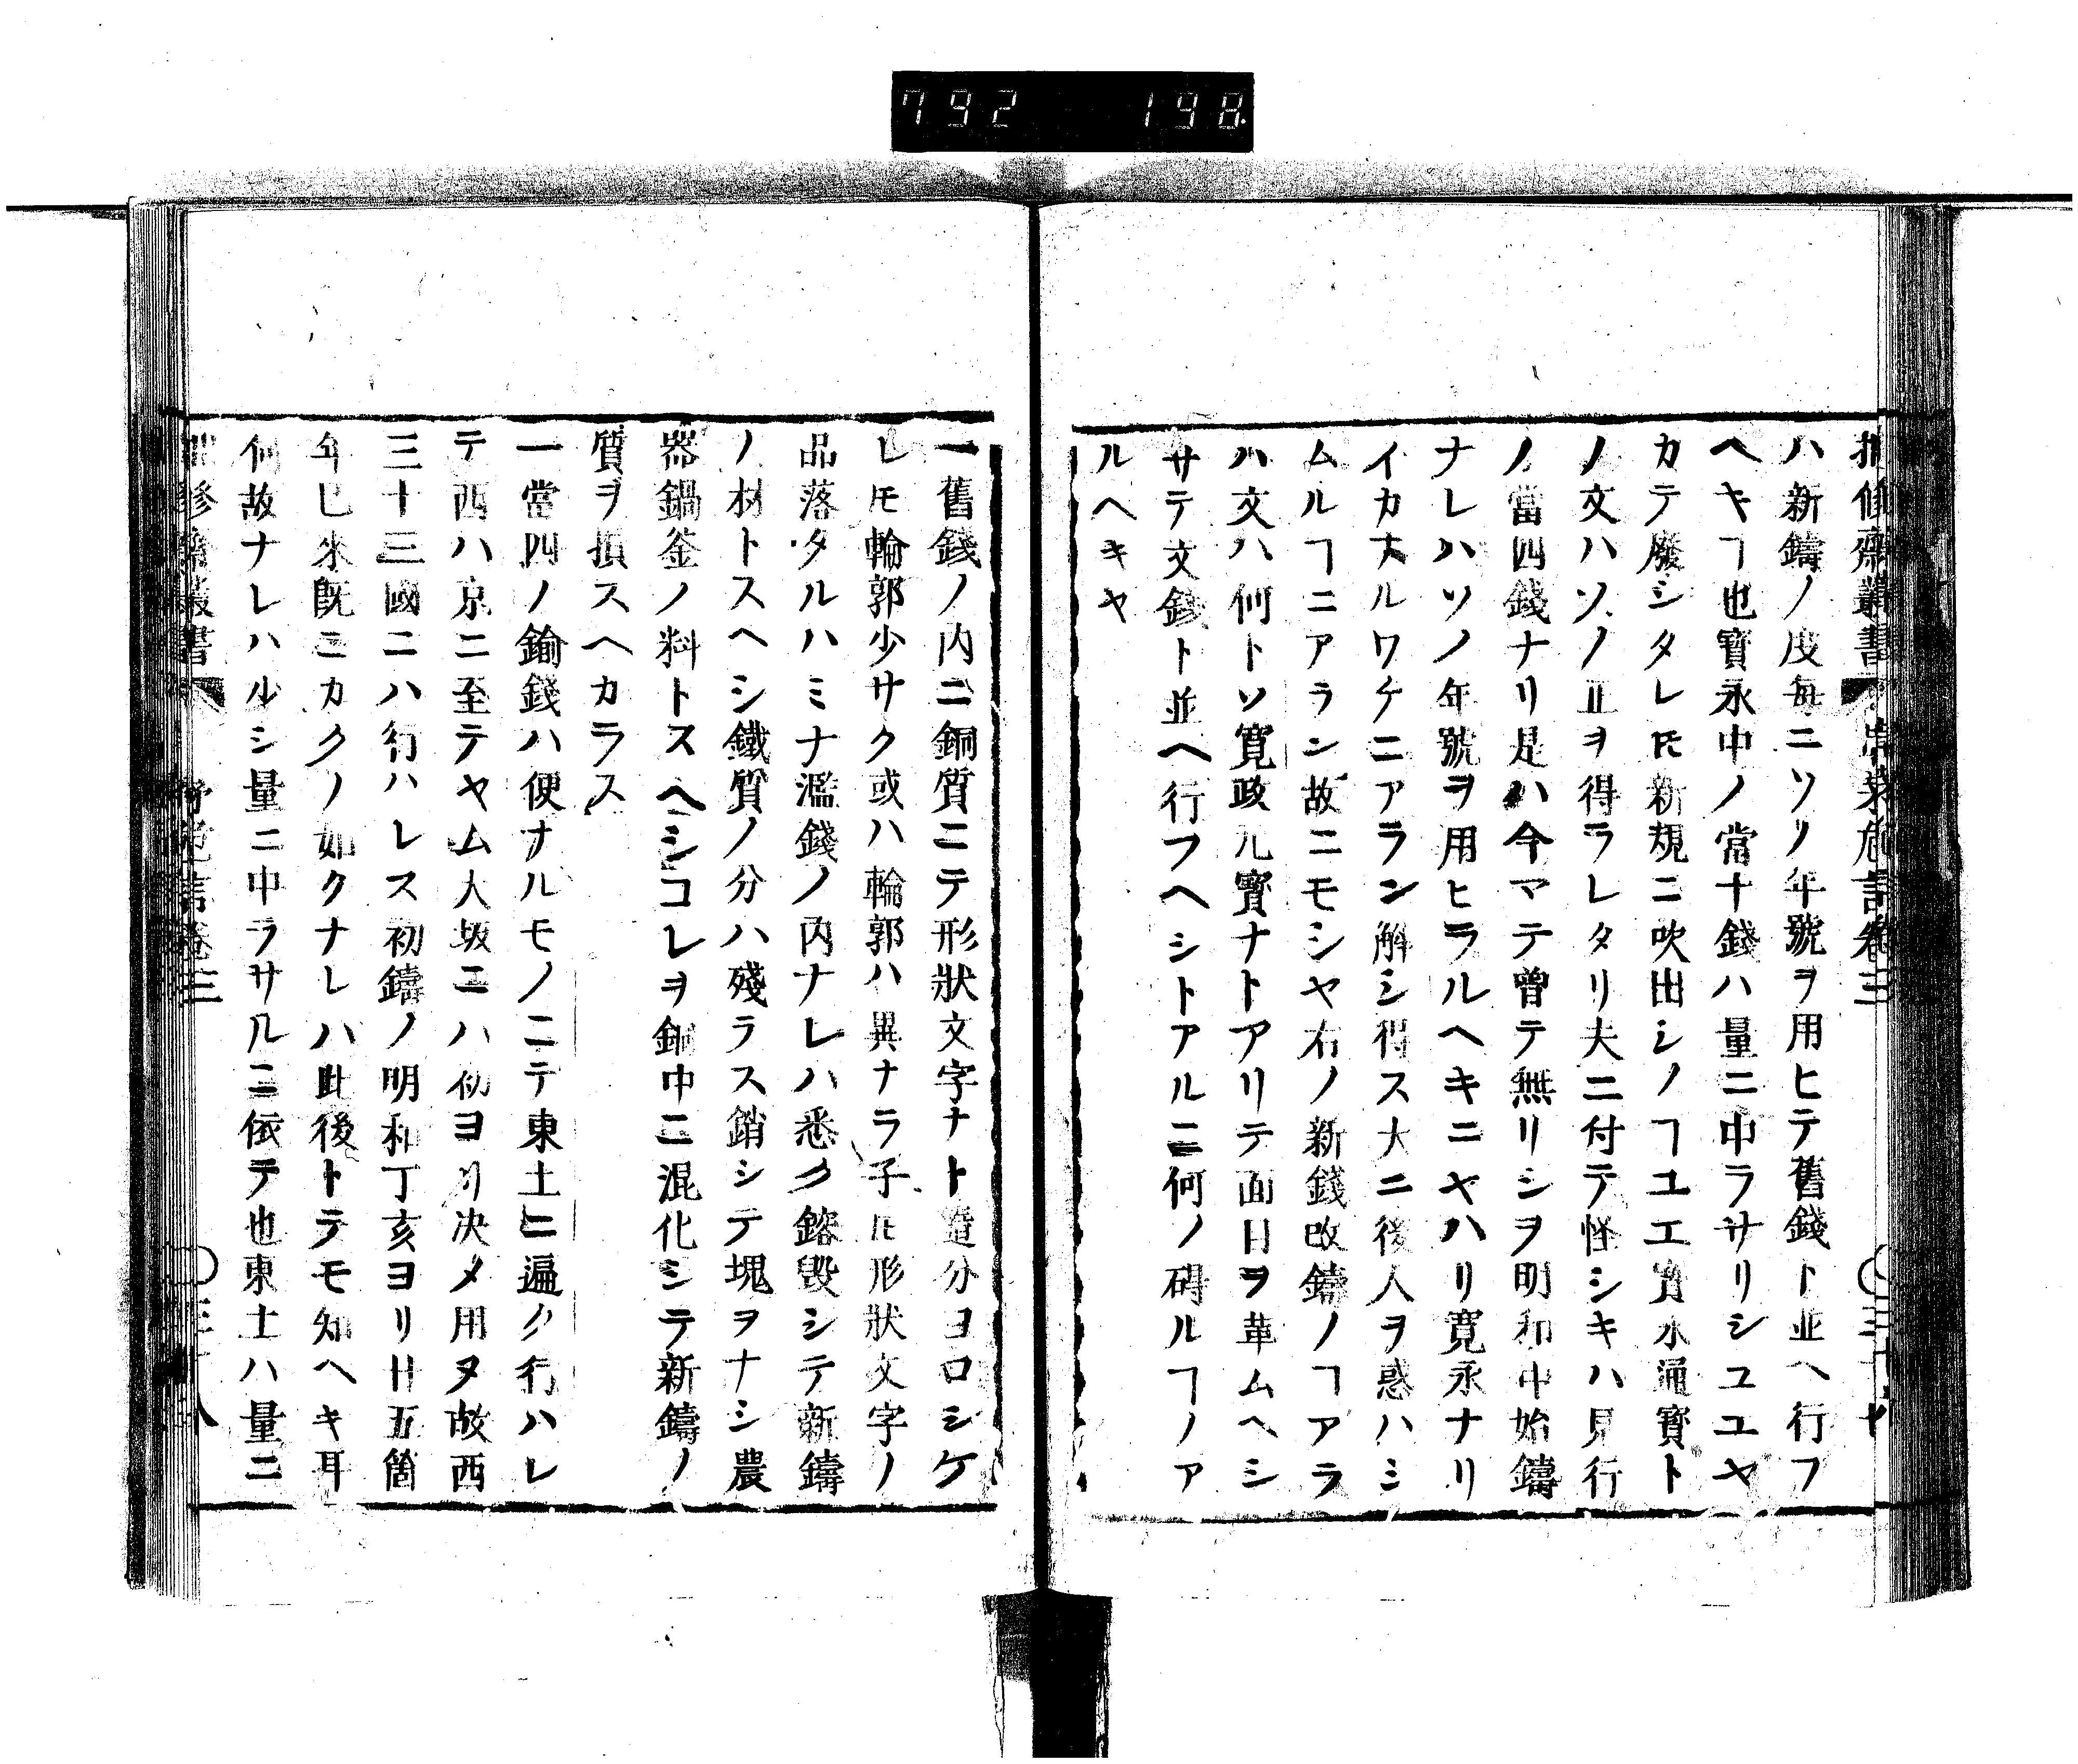 792 198
ハ新鑄ノ度毎ニソノ年號ヲ用ヒテ舊錢ト並ヘ行フ
ヘキヿ也寶永中ノ當十錢ハ量ニ中ラサリシユユヤ
カテ廢シタレ𪜈新規ニ吹出シノヿユエ寶永通寶ト
ノ文ハソノ正ヲ得ラレタリ夫ニ付テ怪シキハ見行
ノ當四錢ナリ是ハ今マテ曽テ無リシヲ明和中始鑄
ナレハソノ年號ヲ用ヒラルヘキニヤハリ寛永ナリ
イカナルワケニアラン解シ得ス大ニ後人ヲ惑ハシ
ムルヿニアラン故ニモシヤ右ノ新錢改鑄ノヿアラ
ハ文ハ何トソ寛政元寶ナトアリテ面目ヲ革ムヘシ
サテ文錢ト並ヘ行フヘシトアルニ何ノ碍ルヿノア
ルヘキヤ
一舊錢ノ内ニ銅質ニテ形狀文字ナト造分ヨロシケ
レ𪜈輪郭少サク或ハ輪郭ハ異ナラ子𪜈形狀文字ノ
品落タルハミナ濫錢ノ内ナレハ悉ク鎔毀シテ新鑄
ノ材トスヘシ鐵質ノ分ハ殘ラス銷シテ塊ヲナシ農
器鍋釜ノ料トスヘシコレヲ銅中ニ混化シテ新鑄ノ
質ヲ損スヘカラス
一當四ノ鍮錢ハ便ナルモノニテ東土ヒ遍ク行ハレ
テ西ハ京ニ至テヤム大坂ニハ初ヨリ决メ用タ故西
三十三國ニハ行ハレス初鑄ノ明和丁亥ヨリ廿五箇
年已來既ニカクノ如クナレハ此後トテモ知ヘキ耳
何故ナレハルシ量ニ中ラサルニ依テ也東土ハ量ニ